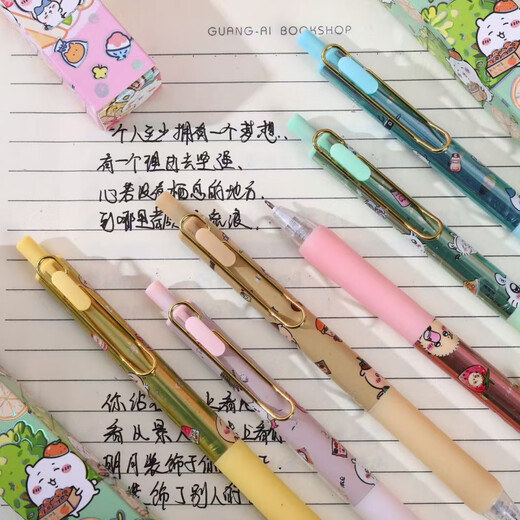 GUANG-AI BOOKSHOP
一个人至少拥有一个梦想.
有一个理由去坚强.
心若没有栖息的地方.
到哪里都 流浪.
你站 上看
看 人 上看
明月装饰了你
装饰了别人的